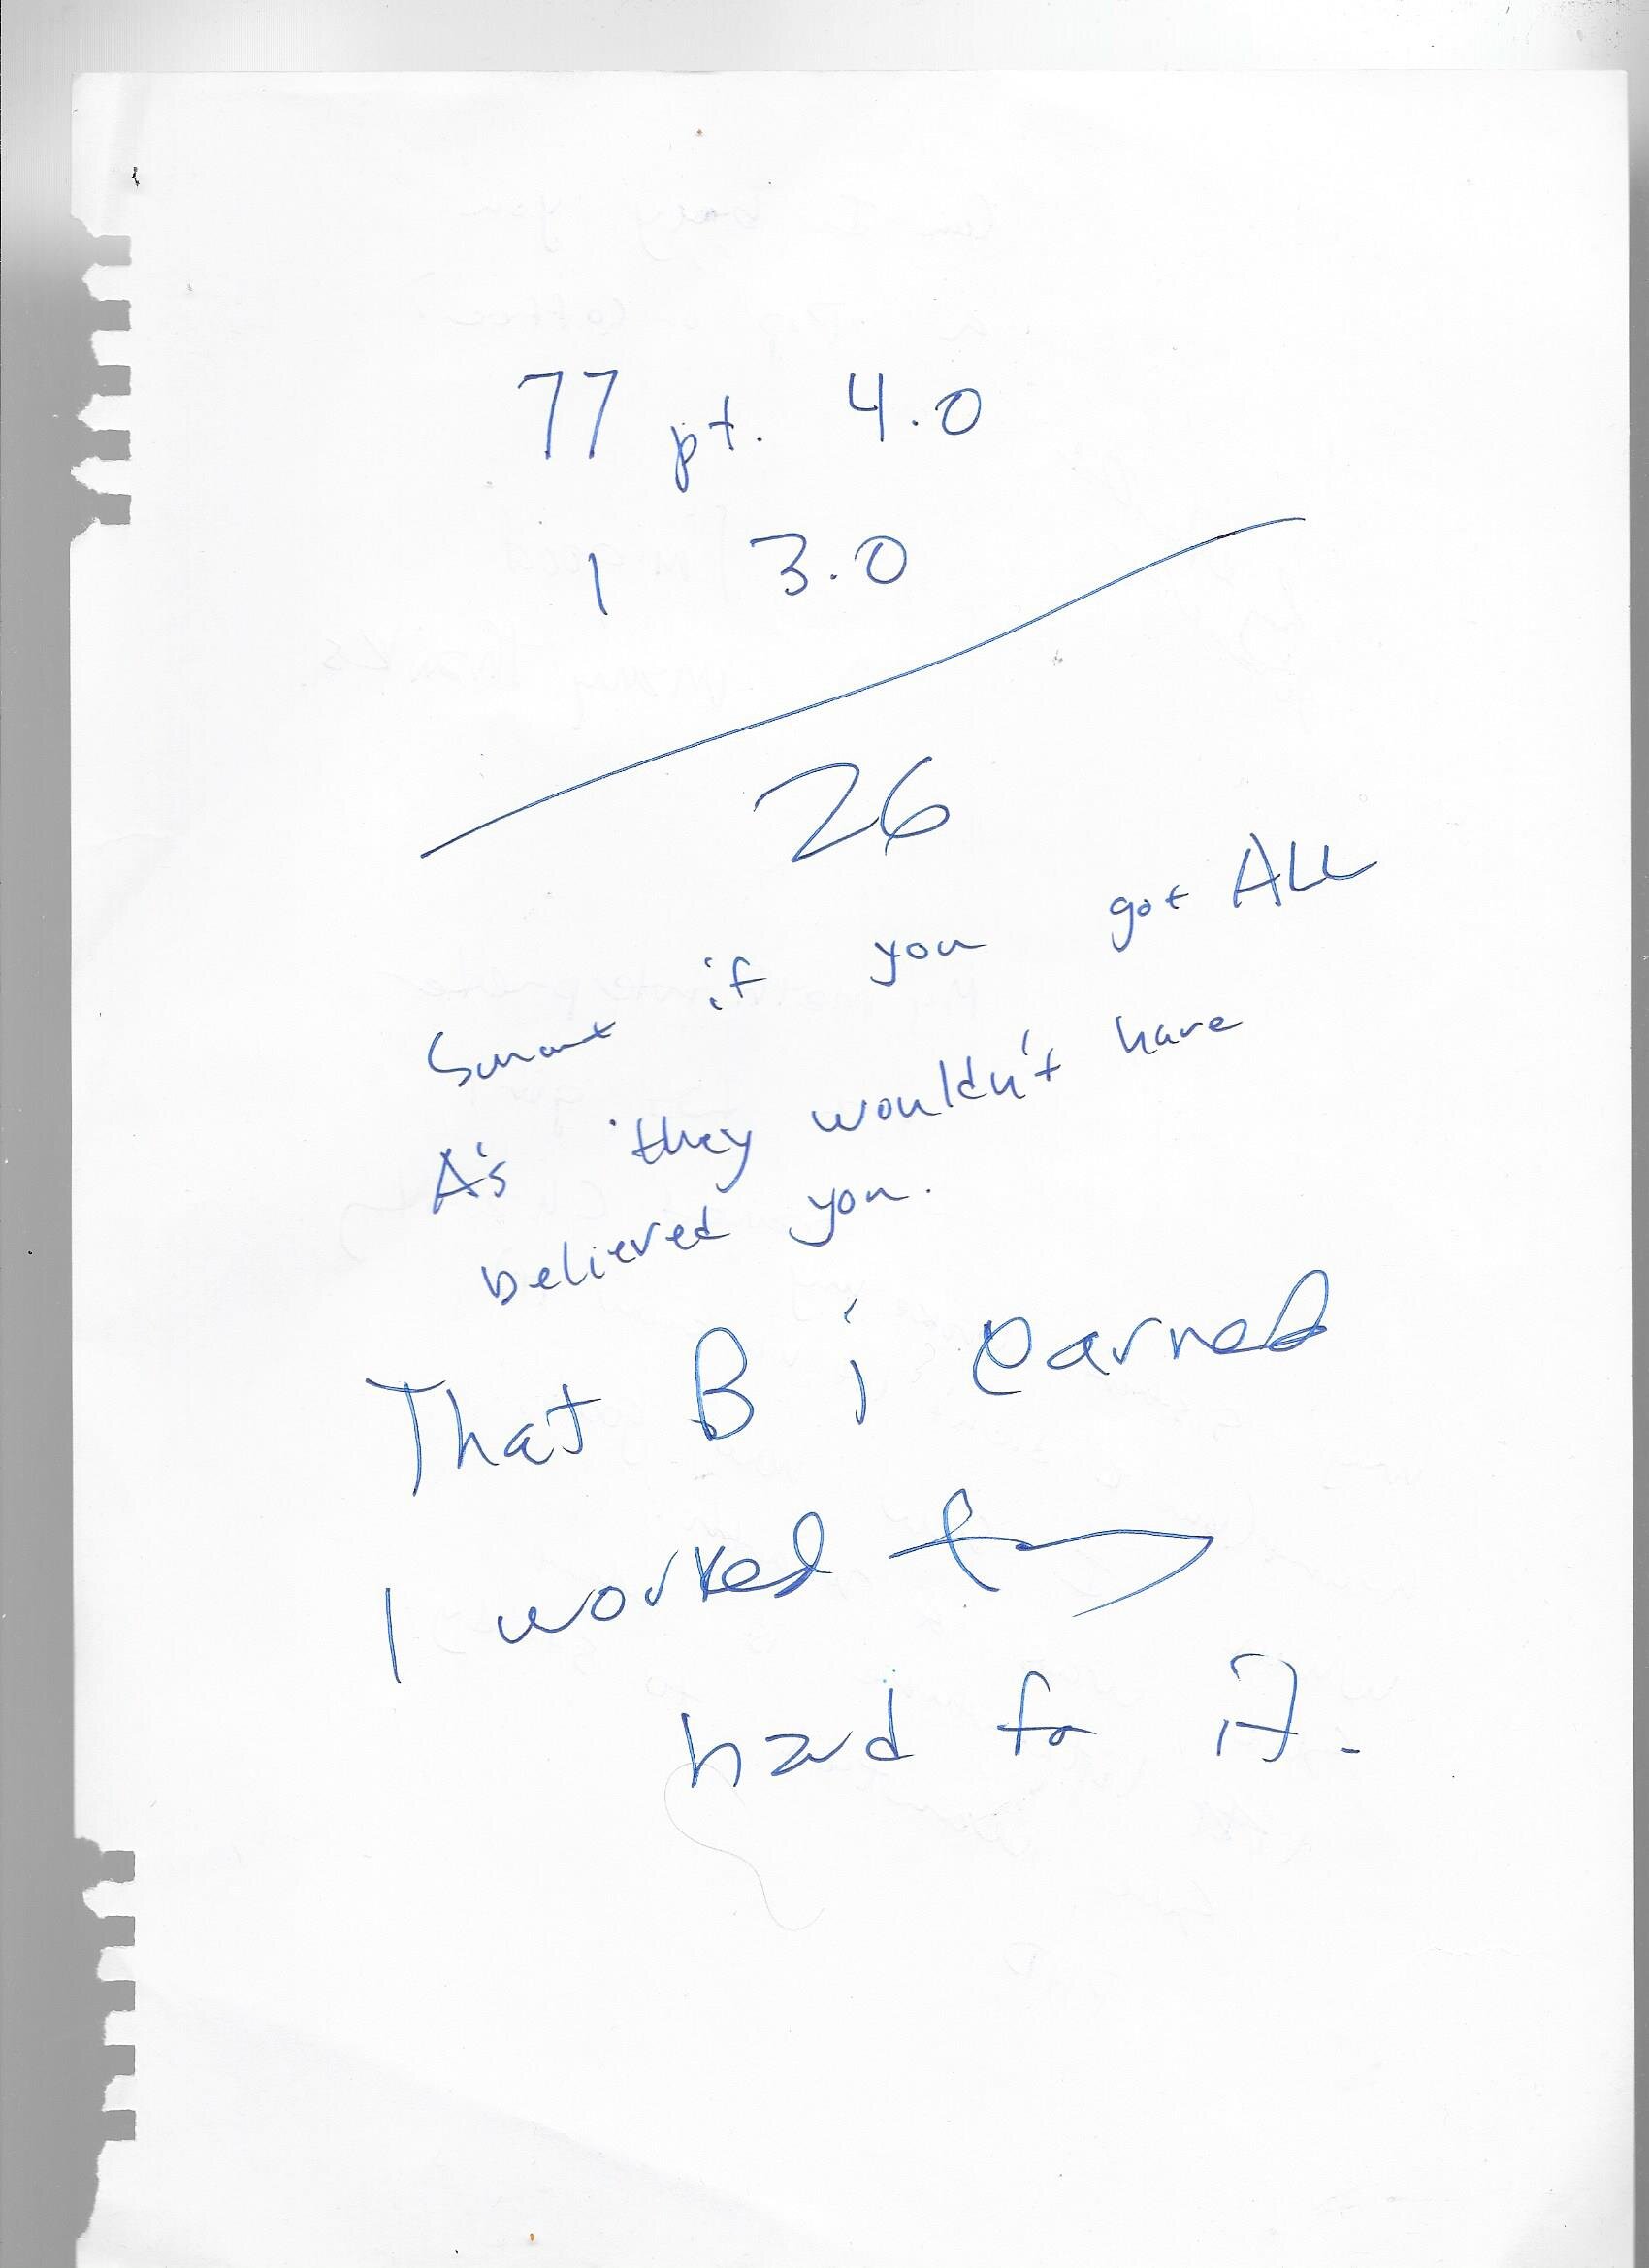 77 pt. 4.0
1 3.0
26
Smart if you got ALL
A's they wouldn't have
believed you.
That B i earned
I worked
hard for it.